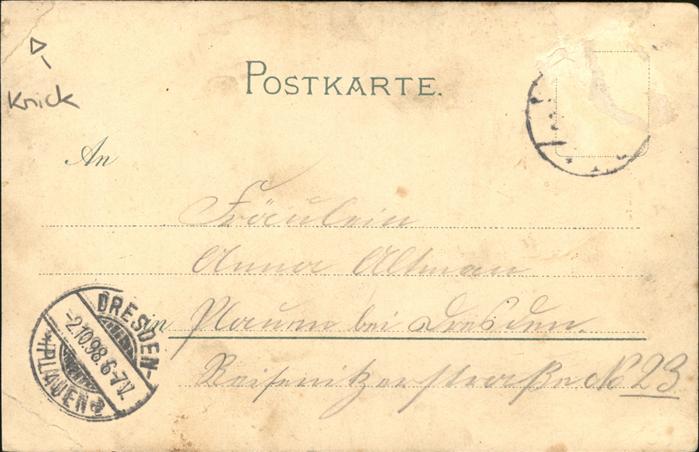 Knick
POSTKARTE.
An
Fräulein
Anna Altman
in Plauen bei Dresden.
No 23
DRESDEN-
-2.10.98.6-7V.
*(PLAUEN)e